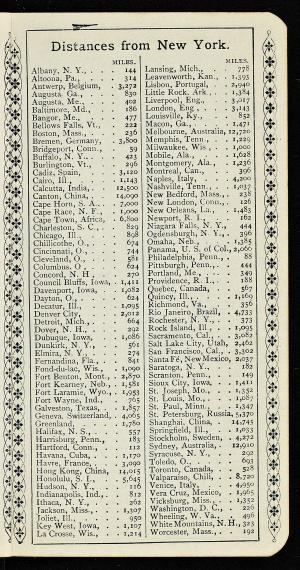 Distances from New York.
MILES.
Albany, N. Y., 144
Altoona, Pa., 314
Antwerp, Belgium, 3,272
Augusta, Ga., 830
Augusta, Me., 402
Baltimore, Md., 186
Bangor, Me., 477
Bellows Falls, Vt., 222
Boston, Mass., 236
Bremen, Germany, 3,800
Bridgeport, Conn., 59
Buffalo, N. Y., 423
Burlington, Vt., 296
Cadiz, Spain, 3,120
Cairo, Ill., 1,143
Calcutta, India, 12,500
Canton, China, 14,090
Cape Horn, S. A., 7,000
Cape Race, N. F., 1,000
Cape Town, Africa, 6,800
Charleston, S. C., 829
Chicago, Ill., 898
Chillicothe, O., 674
Cincinnati, O., 744
Cleveland, O., 581
Columbus, O., 624
Concord, N. H., 270
Council Bluffs, Iowa, 1,411
Davenport, Iowa, 1,082
Dayton, O., 624
Decatur, Ill., 1,095
Denver City, 2,012
Detroit, Mich., 664
Dover, N. H., 292
Dubuque, Iowa, 1,086
Dunkirk, N. Y., 561
Elmira, N. Y., 274
Fernandina, Fla., 841
Fond-du-lac, Wis., 1,090
Fort Benton, Mont., 2,870
Fort Kearney, Neb., 1,581
Fort Laramie, Wyo., 1,953
Fort Wayne, Ind., 765
Galveston, Texas, 1,857
Geneva, Switzerland, 4,065
Greenland, 1,780
Halifax, N. S., 557
Harrisburg, Penn., 183
Hartford, Conn., 112
Havana, Cuba, 1,170
Havre, France, 3,090
Hong Kong, China, 14,015
Honolulu, S. I., 5,645
Hudson, N. Y., 116
Indianapolis, Ind., 812
Ithaca, N. Y., 262
Jackson, Miss., 1,307
Joliet, Ill., 950
Key West, Iowa, 1,107
La Crosse, Wis., 1,214
MILES.
Lansing, Mich., 778
Leavenworth, Kan., 1,393
Lisbon, Portugal, 2,940
Little Rock, Ark., 1,384
Liverpool, Eng., 3,017
London, Eng., 3,143
Louisville, Ky., 852
Macon, Ga., 1,471
Melbourne, Australia, 12,720
Memphis, Tenn., 1,229
Milwaukee, Wis., 1,000
Mobile, Ala., 1,628
Montgomery, Ala., 1,236
Montreal, Can., 396
Naples, Italy, 4,200
Nashville, Tenn., 1,037
New Bedford, Mass., 238
New London, Conn., 126
New Orleans, La., 1,483
Newport, R. I., 162
Niagara Falls, N. Y., 444
Ogdensburg, N. Y., 396
Omaha, Neb., 1,385
Panama, U. S. of Col., 2,060
Philadelphia, Penn., 88
Pittsburgh, Penn., 444
Portland, Me., 349
Providence, R. I., 188
Quebec, Canada, 567
Quincy, Ill., 1,160
Richmond, Va., 356
Rio Janeiro, Brazil, 4,733
Rochester, N. Y., 373
Rock Island, Ill., 1,095
Sacramento, Cal., 3,082
Salt Lake City, Utah, 2,462
San Francisco, Cal., 3,302
Santa Fé, New Mexico, 2,037
Saratoga, N. Y., 182
Scranton, Penn., 149
Sioux City, Iowa, 1,411
St. Joseph, Mo., 1,352
St. Louis, Mo., 1,087
St. Paul, Minn., 1,347
St. Petersburg, Russia, 5,370
Shanghai, China, 14,745
Springfield, Ill., 1,033
Stockholm, Sweden, 4,272
Sydney, Australia, 12,910
Syracuse, N. Y., 292
Toledo, O., 693
Toronto, Canada, 528
Valparaiso, Chili, 8,720
Venice, Italy, 4,950
Vera Cruz, Mexico, 1,965
Vicksburg, Miss., 1,352
Washington, D. C., 226
Wheeling, W. Va., 496
White Mountains, N. H., 323
Worcester, Mass., 192